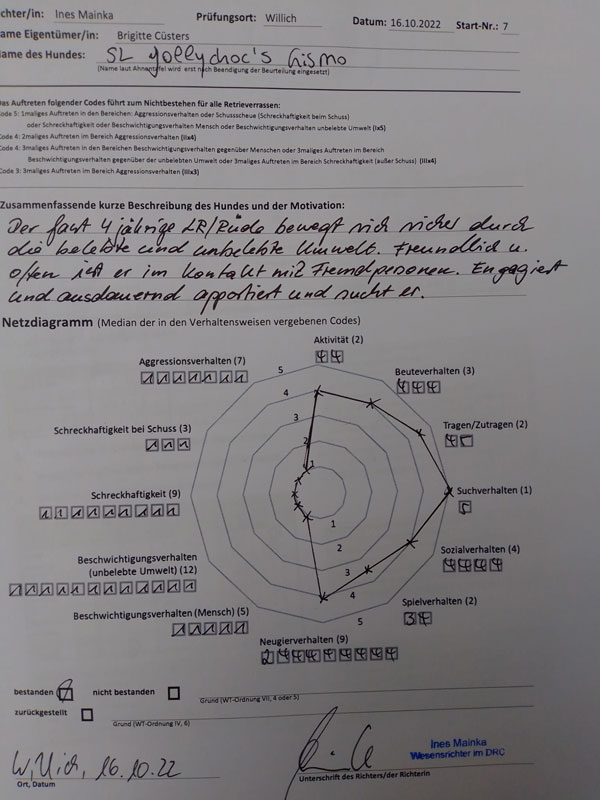 chter/in: Ines Mainka Prüfungsort: Willich Datum: 16.10.2022 Start-Nr.: 7
ame Eigentümer/in: Brigitte Cüsters
ame des Hundes: SL Jollychoc's Gismo
(Name laut Ahnentafel wird erst nach Beendigung der Beurteilung eingesetzt)
as Auftreten folgender Codes führt zum Nichtbestehen für alle Retrieverrassen:
ode 5: 1maliges Auftreten in den Bereichen: Aggressionsverhalten oder Schussscheue (Schreckhaftigkeit beim Schuss)
oder Schreckhaftigkeit oder Beschwichtigungsverhalten Mensch oder Beschwichtigungsverhalten unbelebte Umwelt (Ix5)
Code 4: 2maliges Auftreten im Bereich Aggressionsverhalten (IIx4)
Code 4: 3maliges Auftreten in den Bereichen Beschwichtigungsverhalten gegenüber Menschen oder 3maliges Auftreten im Bereich
Beschwichtigungsverhalten gegenüber der unbelebten Umwelt oder 3maliges Auftreten im Bereich Schreckhaftigkeit (außer Schuss) (IIIx4)
Code 3: 3maliges Auftreten im Bereich Aggressionsverhalten (IIIx3)
Zusammenfassende kurze Beschreibung des Hundes und der Motivation:
Der fast 4 jährige LR/Rüde bewegt sich sicher durch
die belebte und unbelebte Umwelt. Freundlich u.
offen ist er im Kontakt mit Fremdpersonen. Engagiert
und ausdauernd apportiert und sucht er.
Netzdiagramm (Median der in den Verhaltensweisen vergebenen Codes)
Aktivität (2)
4 4
Aggressionsverhalten (7)
1 1 1 1 1 1 1
Beuteverhalten (3)
4 4 4
Schreckhaftigkeit bei Schuss (3)
1 1 1
Tragen/Zutragen (2)
4 5
Schreckhaftigkeit (9)
1 1 1 1 1 1 1 1 1
Suchverhalten (1)
5
Beschwichtigungsverhalten
(unbelebte Umwelt) (12)
1 1 1 1 1 1 1 1 1 1 1 1
Sozialverhalten (4)
4 4 4 4
Beschwichtigungsverhalten (Mensch) (5)
1 1 1 1 1
Spielverhalten (2)
3 4
Neugierverhalten (9)
2 4 4 4 4 4 4 4 4
5
4
3
2
1
1
2
3
4
5
bestanden nicht bestanden Grund (WT-Ordnung VII, 4 oder 5)
zurückgestellt Grund (WT-Ordnung IV, 6)
Willich, 16.10.22
Ort, Datum
Ines Mainka
Wesensrichter im DRC
Unterschrift des Richters/der Richterin